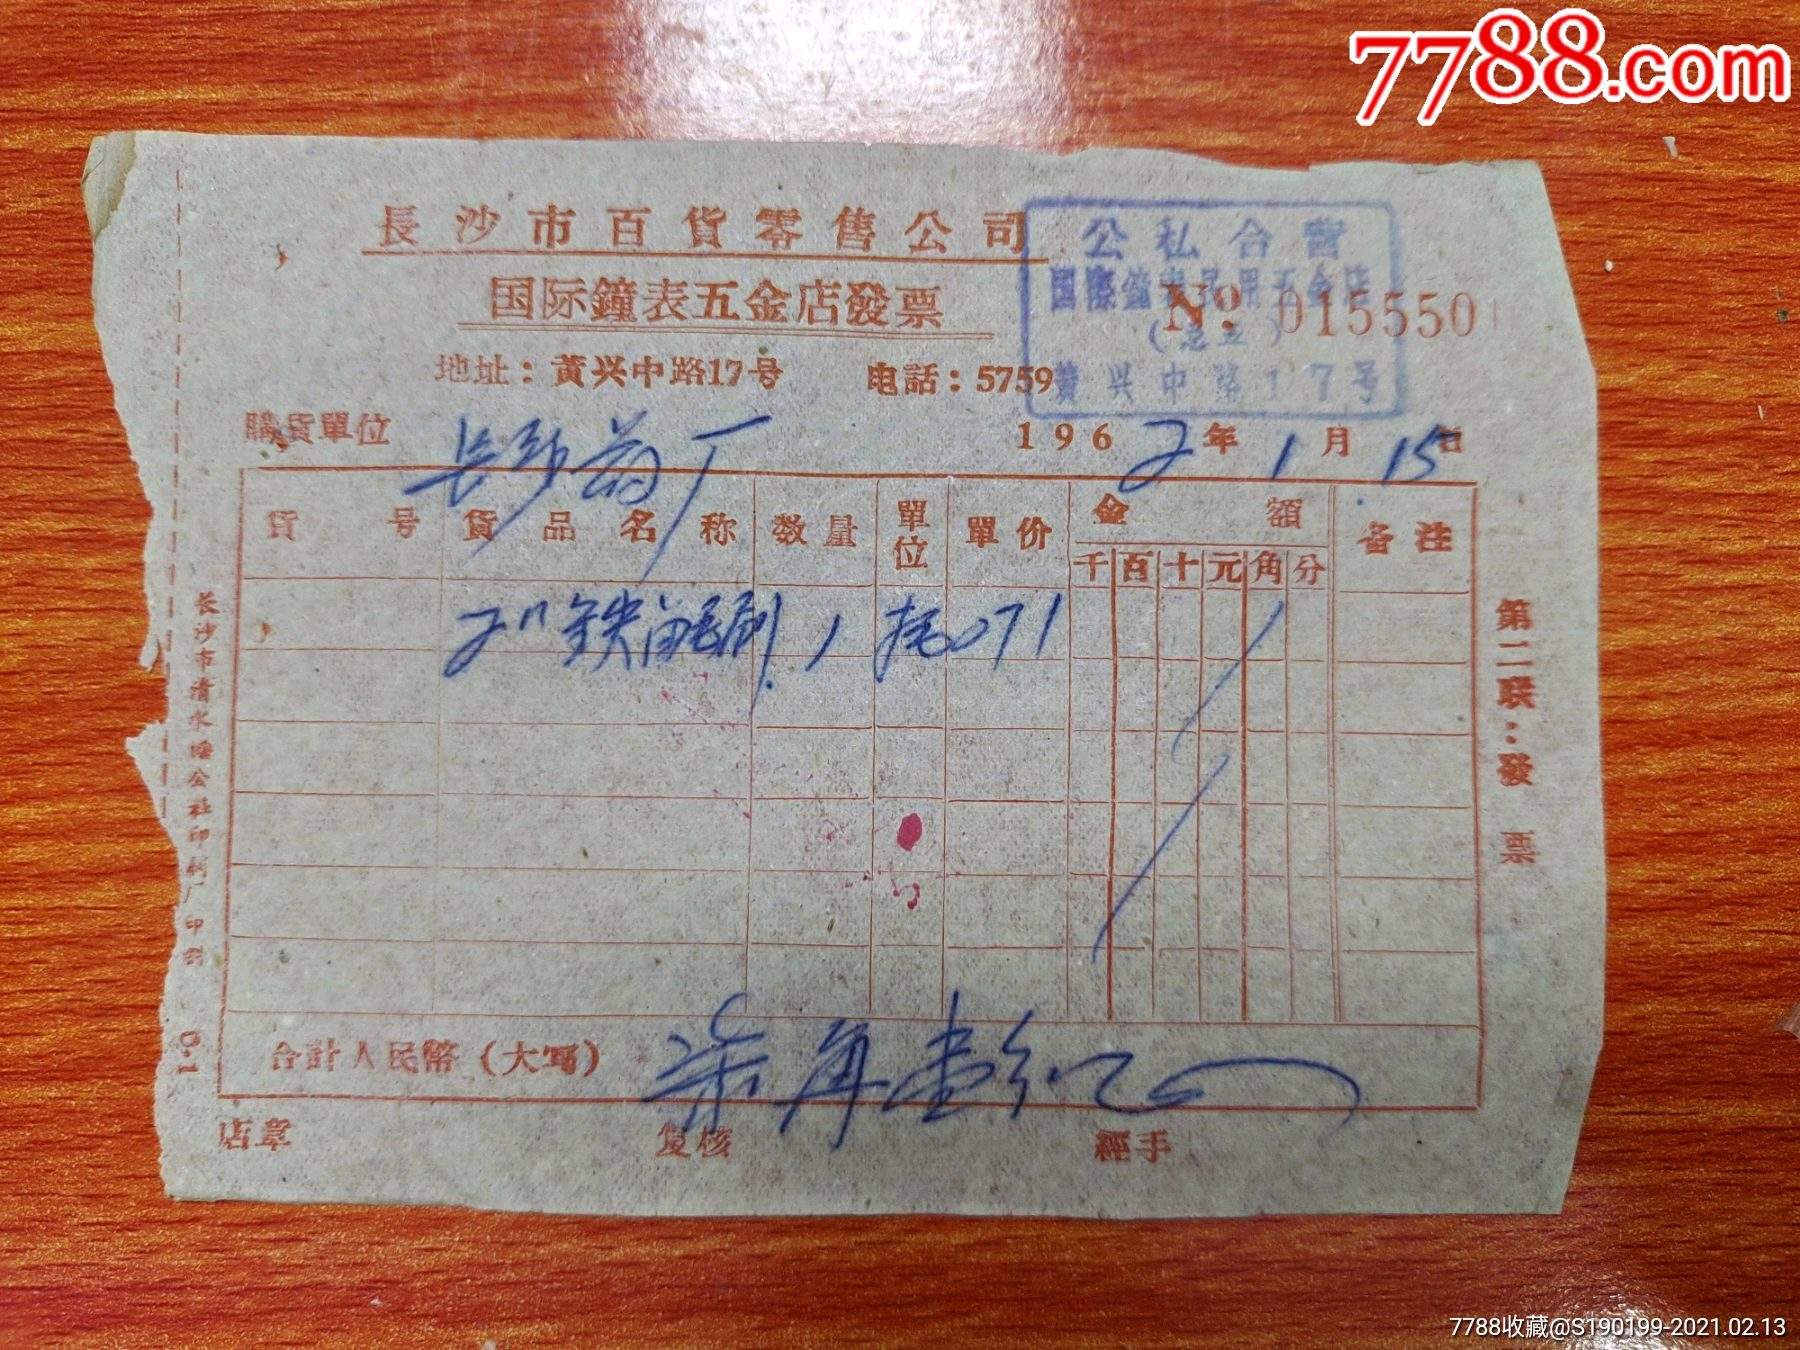 7788.com
長沙市百貨零售公司
国际鐘表五金店發票
公私合营
国際鐘表民用五金店
黄兴中路17号
№ 015550
地址：黄兴中路17号 电話：5759
購貨單位 长沙药厂 1962年1月15日
貨号 貨品名称 数量 單位 單价 金額 备注
千 百 十 元 角 分
2" 铁 刷 1 071
合計人民幣（大写） 柒角壹分
店章 复核 經手
第二联：發票
长沙市清水塘公社印刷厂印制
7788收藏@S190199-2021.02.13